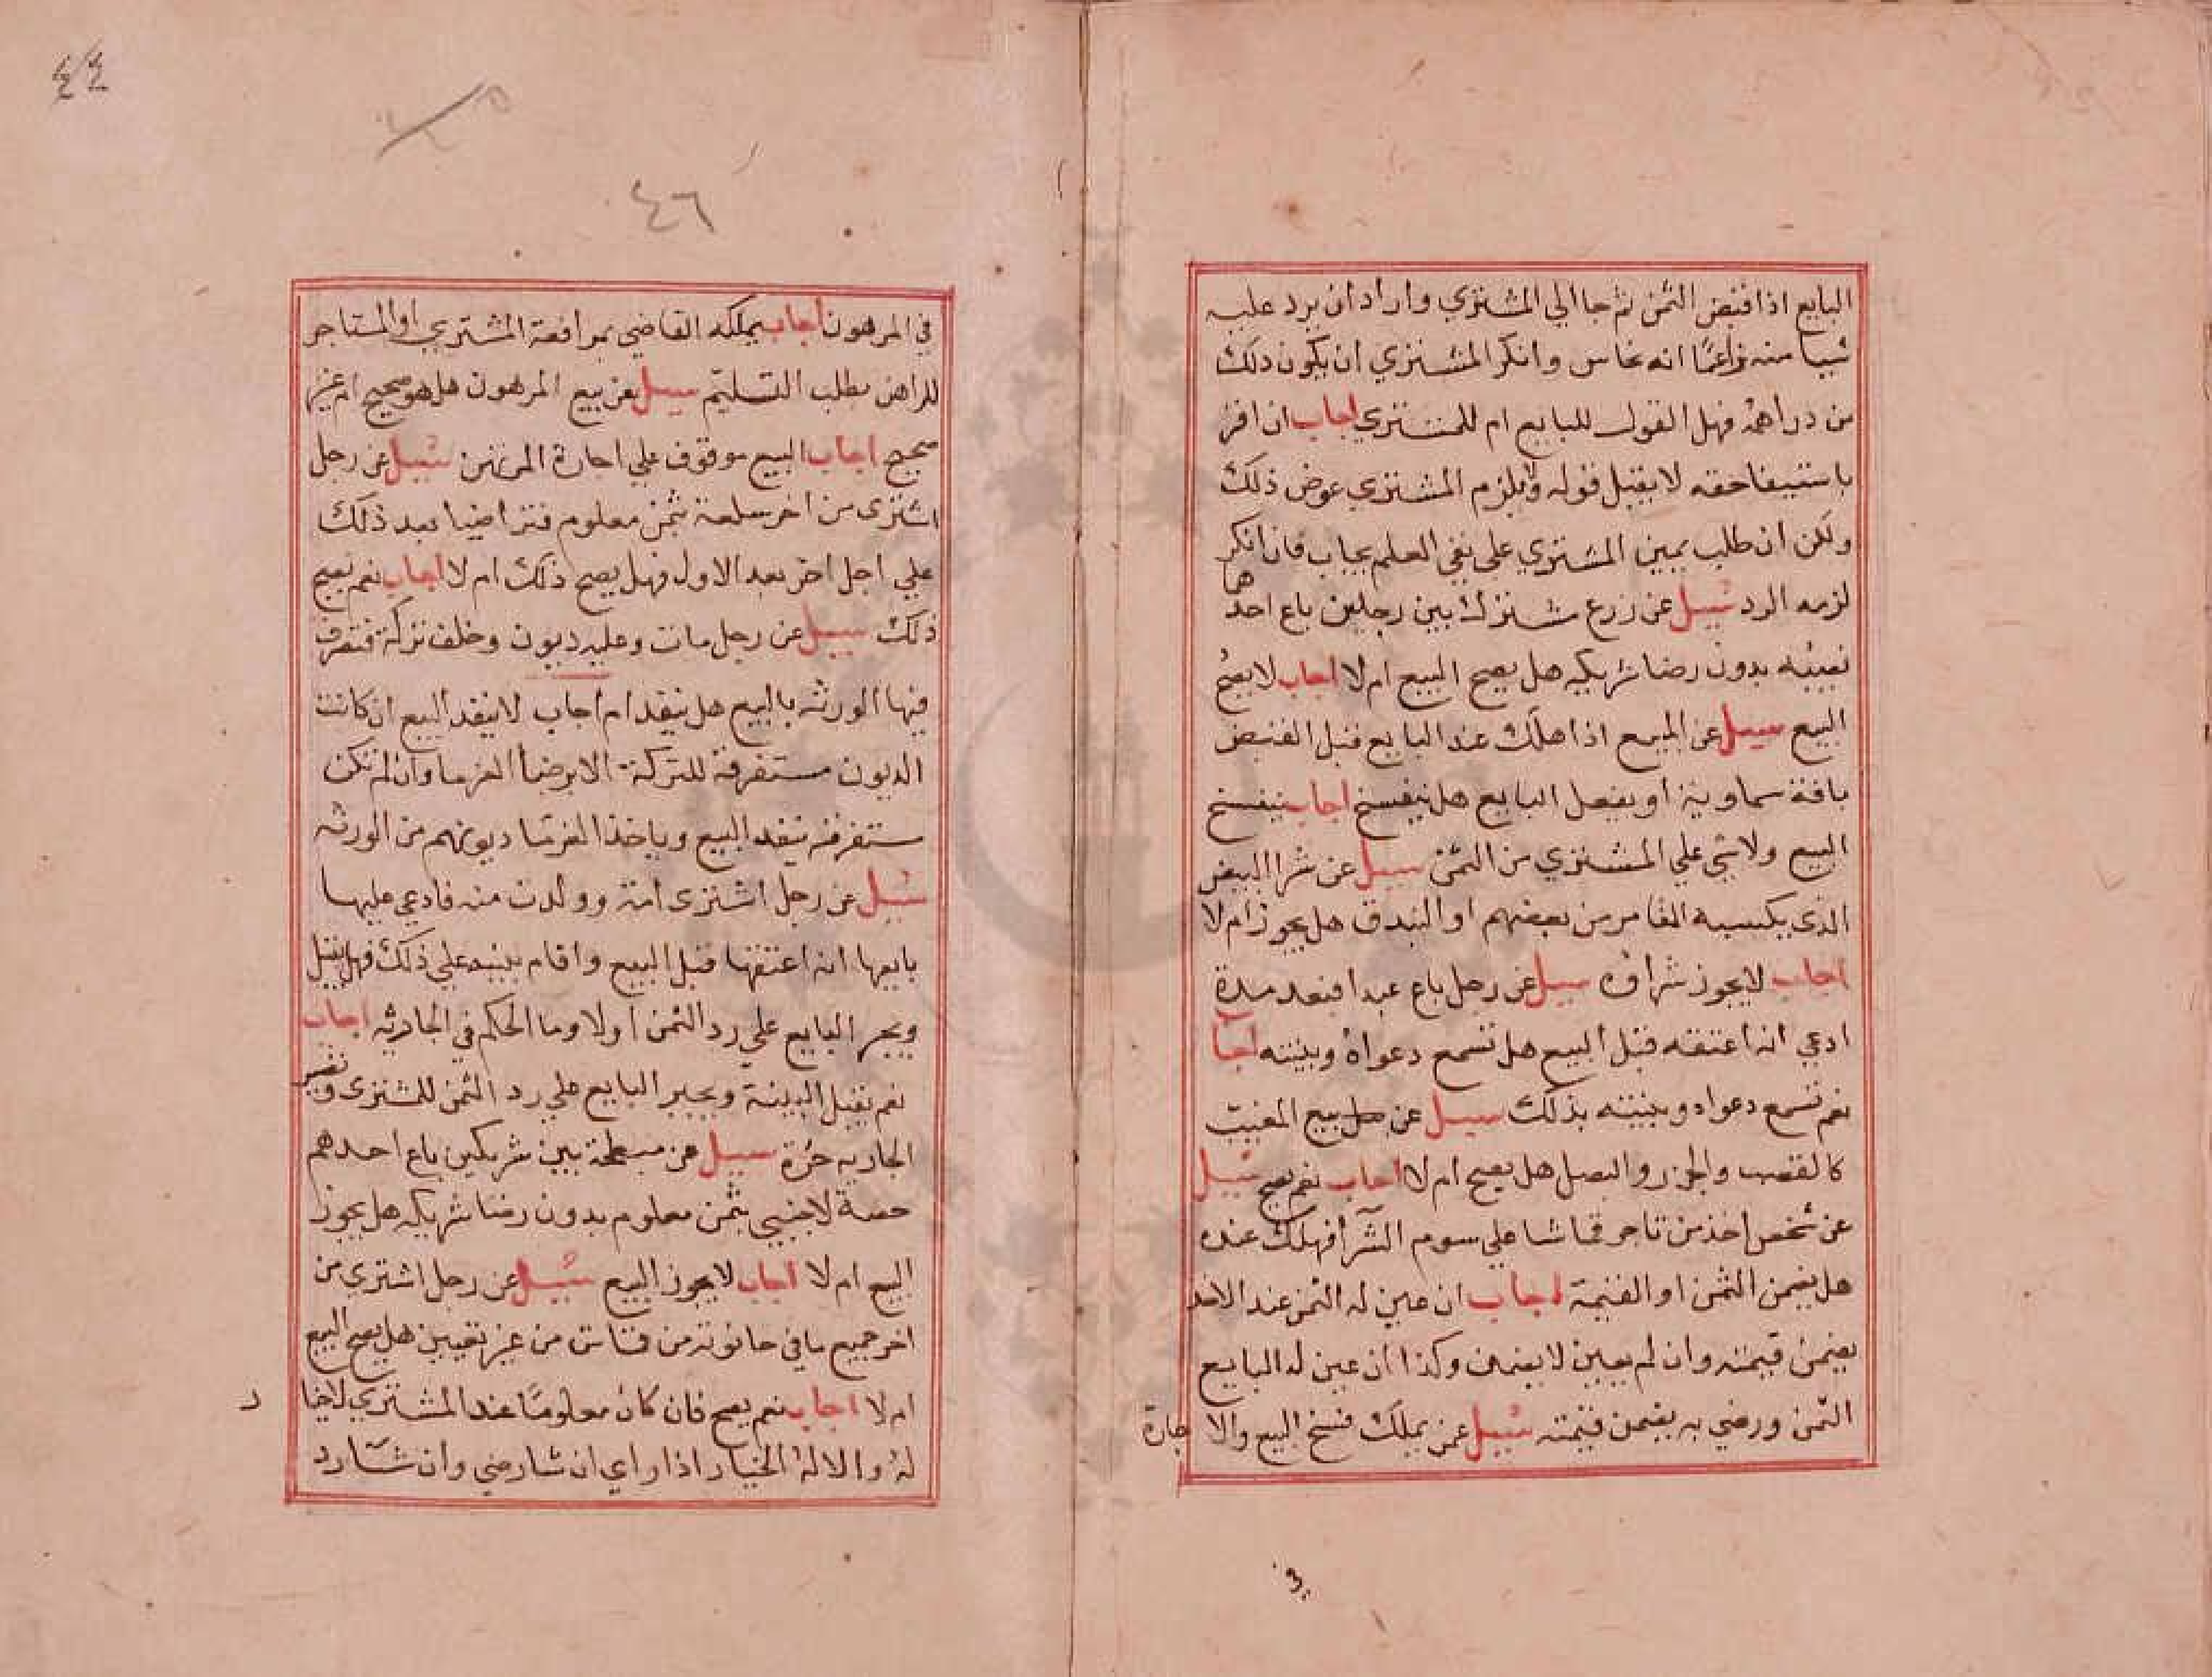 البايع اذا قبض الثمن ثم جا الي المشتري واراد ان يرد عليه
شيا منه زاعمًا انه نحاس وانكر المشتري ان يكون ذلك
من دراهمه فهل القول للبايع ام للمشتري اجاب ان اقر
باستيفا حقه لا يقبل قوله ولا يلزم المشتري عوض ذلك
ولكن ان طلب يمين المشتري علي نفي العلم يجاب فان انكر
لزمه الرد سيل عن زرع مشترك بين رجلين باع احدهما
نصيبه بدون رضا شريكه هل يصح البيع ام لا اجاب لا يصح
البيع سيل عن المبيع اذا هلك عند البايع قبل القبض
بافة سماوية او بفعل البايع هل ينفسخ اجاب ينفسخ
البيع ولا شي علي المشتري من الثمن سيل عن شرا البيض
الذي يكسبه المقامر من بعضهم او البندق هل يجوز ام لا
اجاب لا يجوز شراؤه سيل عن رجل باع عبدا فبعد مدة
ادعي انه اعتقه قبل البيع هل تسمع دعواه وبينته اجاب
نعم تسمع دعواه وبينته بذلك سيل عن بيع المغيب
كالقصب والجزر والبصل هل يصح ام لا اجاب نعم يصح سيل
عن شخص اخذ من تاجر قماشا علي سوم الشرا فهلك عنده
هل يضمن الثمن او القيمة اجاب ان عين له الثمن عند الاخذ
يضمن قيمته وان لم يعين لا يضمن وكذا ان عين له البايع
الثمن ورضي به يضمن قيمته سيل عمن يملك فسخ البيع والا جارة
في
٤٤
٤٦
في المرهون اجاب يملكه القاضي بمرافعة المشتري او المستاجر
للراهن بطلب التسليم سيل عن بيع المرهون هل هو صحيح ام غير
صحيح اجاب البيع موقوف علي اجازة المرتهن سيل عن رجل
اشترى من اخر سلعة بثمن معلوم فتراضيا بعد ذلك
علي اجل اخر بعد الاول فهل يصح ذلك ام لا اجاب نعم يصح
ذلك سيل عن رجل مات وعليه ديون وخلف تركة فتصرف
فيها الورثه بالبيع هل ينفد ام اجاب لا ينفد البيع ان كانت
الديون مستغرقة للتركة الا برضا الغرما وان لم تكن
مستغرقه ينفد البيع وياخذ الغرما ديونهم من الورثه
سيل عن رجل اشترى امة وولدت منه فادعي عليها
بايعها انه اعتقها قبل البيع واقام بينه علي ذلك فهل يقبل
ويجبر البايع علي رد الثمن او لا وما الحكم في الحادثه اجاب
نعم تقبل البينة ويجبر البايع علي رد الثمن للمشترى وتصير
الجاريه حرة سيل عن مبطخة بين شريكين باع احدهم
حصة لاجنبي بثمن معلوم بدون رضا شريكه هل يجوز
البيع ام لا اجاب لا يجوز البيع سيل عن رجل اشترى من
اخر جميع ما في حانوته من قماش من غير تعيين هل يصح البيع
ام لا اجاب نعم يصح فان كان معلومًا عند المشتري لا خيار
له والا له الخيار اذا راي ان شا رضي وان شا رد